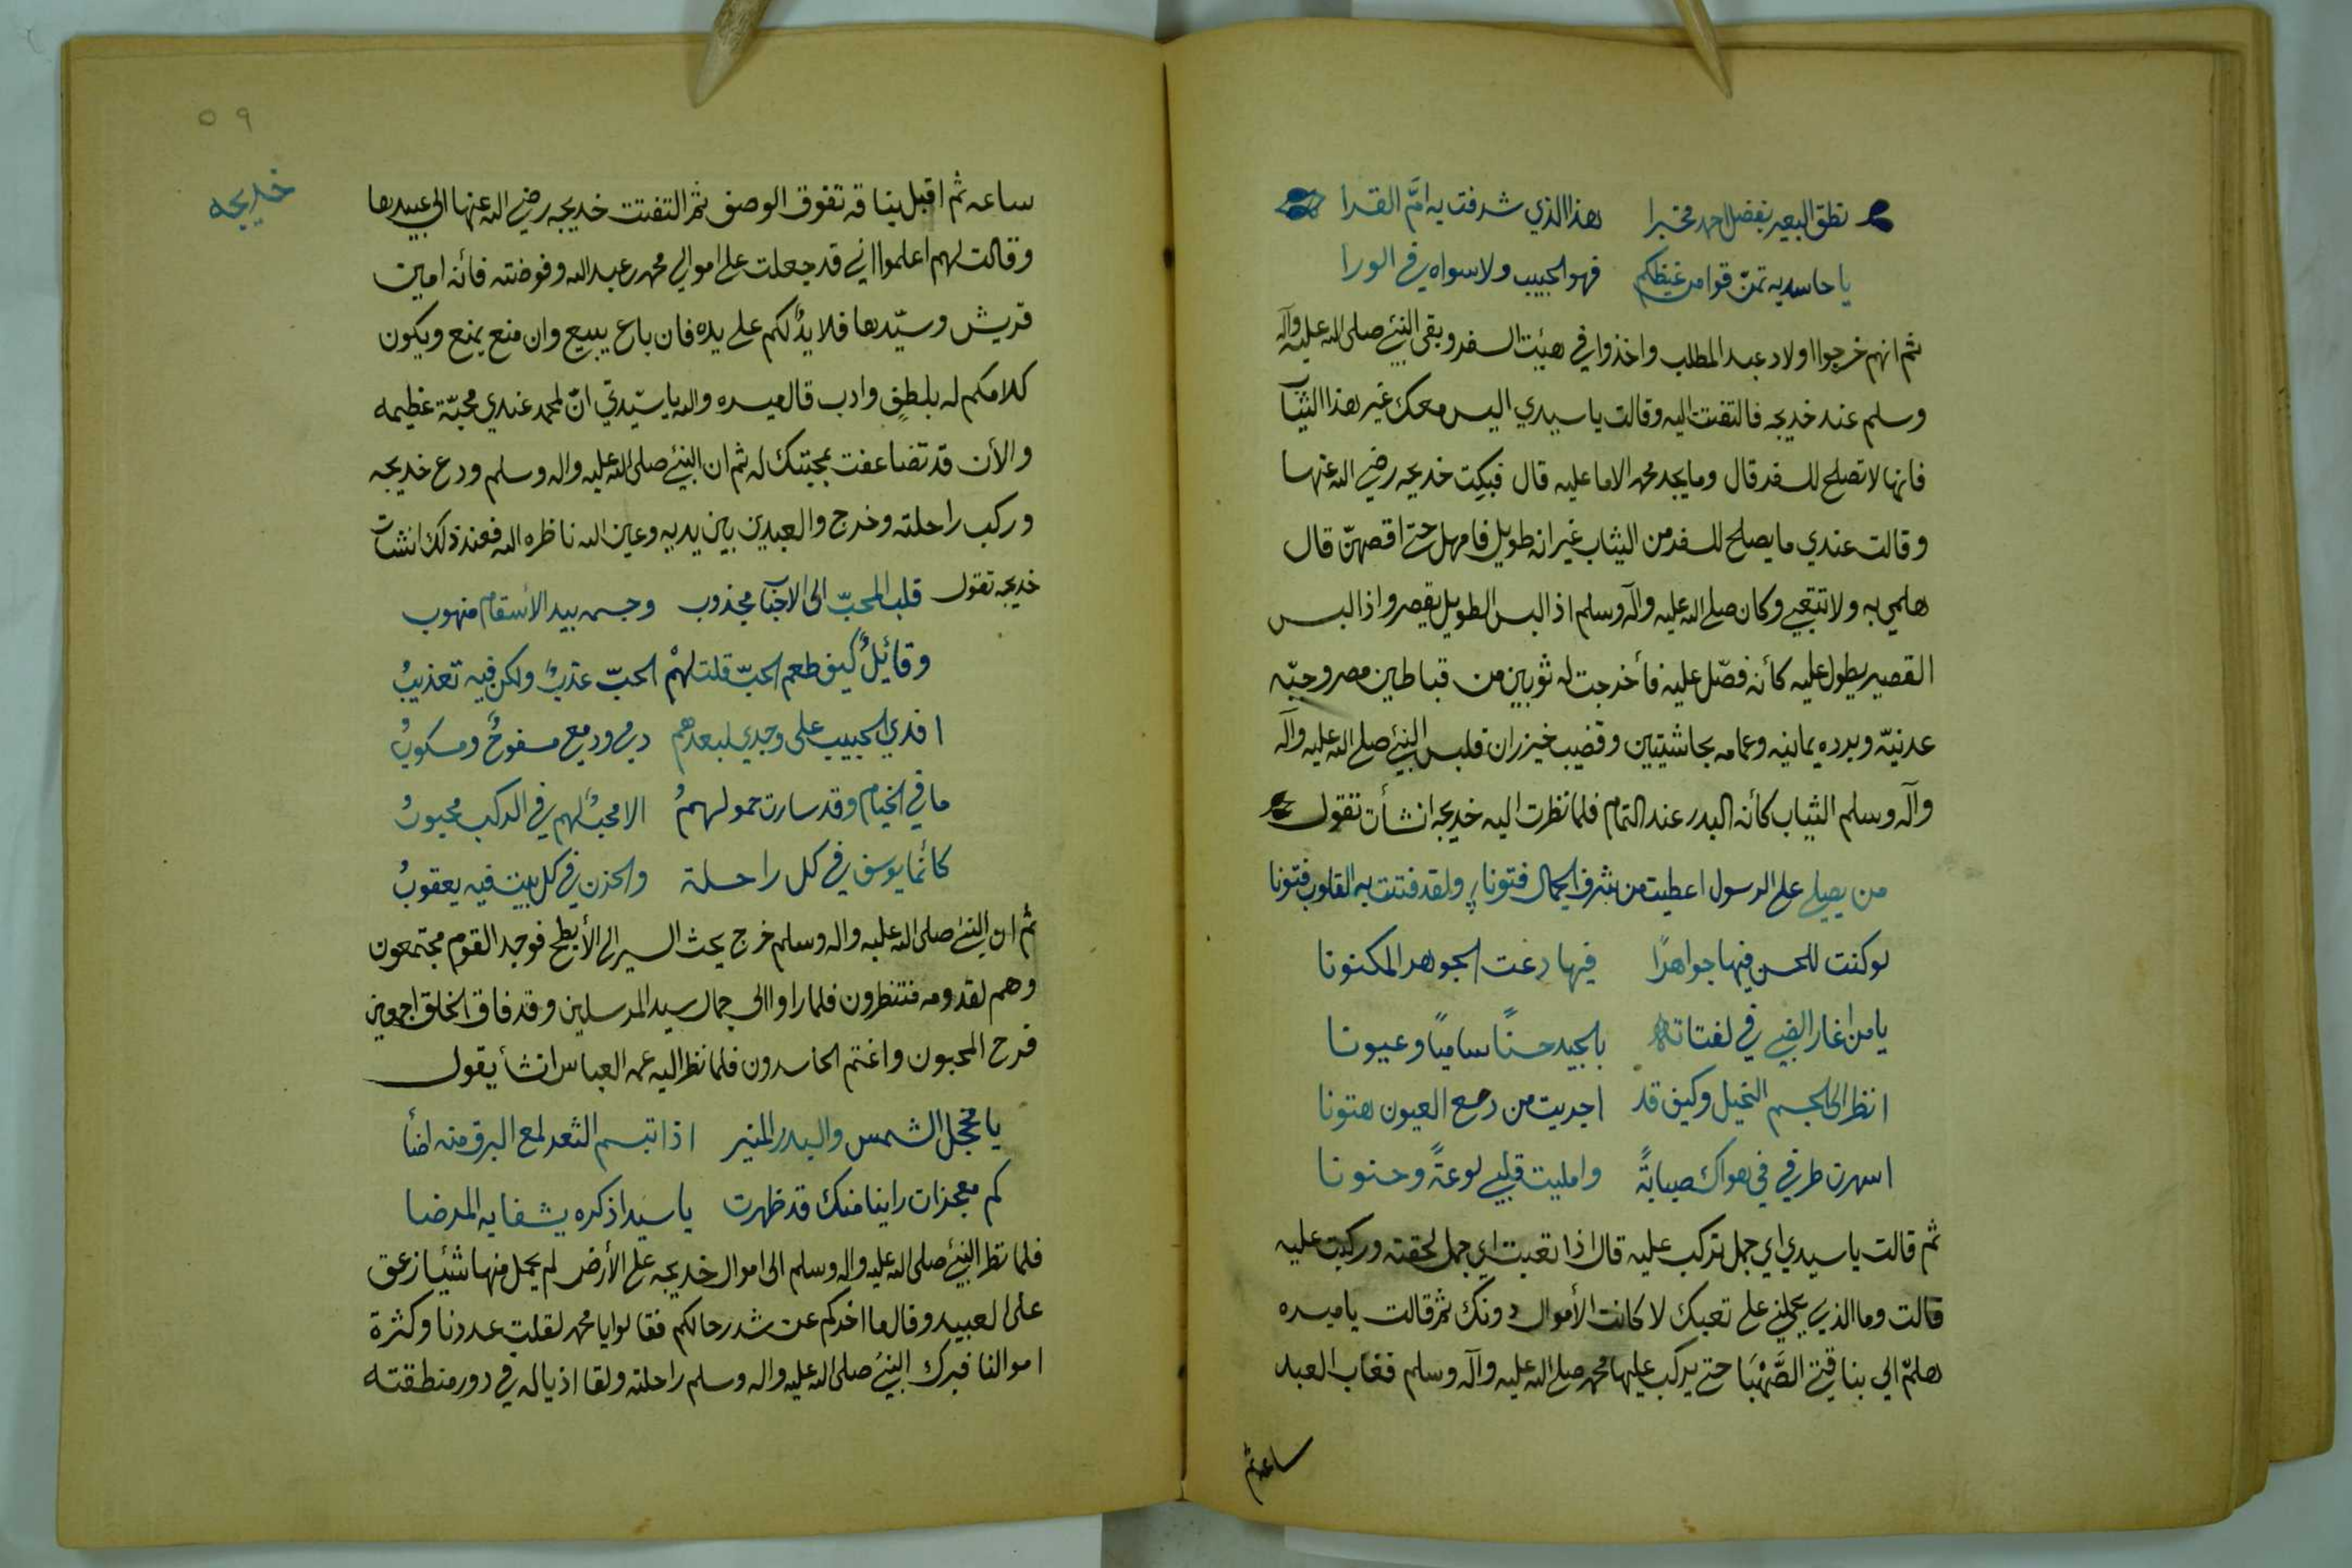 نطق البعير بفضل احمد مخبرا هذا الذي شرفت به امَّ القرا
يا حاسديه تمزّقوا من غيظكم فهو الحبيب ولا سواه في الورا
ثم انهم خرجوا اولاد عبد المطلب واخذوا في هيئت السفر وبقى النبيّ صلى الله عليه وآله
وسلم عند خديجه فالتفتت اليه وقالت يا سيدي اليس معك غير هذا الثياب
فانها لا تصلح للسفر قال وما يجد محمد الا ما عليه قال فبكِت خديجه رضي الله عنها
وقالت عندي ما يصلح للسفر من الثياب غير انه طويل فامهل حتى اقصهنّ قال
هلمي به ولا تتعبي وكان صلى الله عليه وآله وسلم اذا لبس الطويل يقصر واذا لبس
القصير يطول عليه كأنه فصّل عليه فأخرجت له ثوبين من قباطين مصر وجبّه
عدنيّه وبرده يمانيه وعمامه بحاشيتين وقضيب خيزران فلبس النبيّ صلى الله عليه وآله
وآله وسلم الثياب كأنه البدر عند التمام فلما نظرت اليه خديجه انشأت تقول
من يصلي على الرسول اعطيت من شرف الجمال فتونا ولقد فتنت به القلوب فتونا
لو كنت للحسن فيها جواهرًا فيها دعت الجوهر المكنونا
يا من اغار الضبي في لفتاته بالجيد حسنًا ساميًا وعيونا
انظر الى الجسم النحيل وكيف قد اجريت من دمع العيون هتونا
اسهرت طرفي في هواك صبابةً وامليت قلبي لوعةً وحنونا
ثم قالت يا سيدي اي جمل تركب عليه قال اذا تعبت اي جمل لحقته وركبت عليه
قالت وما الذي يحملني على تعبك لا كانت الأموال دونك ثم قالت يا ميسره
هلمّ الي بناقتي الصَّهْبَا حتى يركب عليها محمد صلى الله عليه وآله وسلم فغاب العبد
ساعه ثم
٥٩
خديجه
ساعه ثم اقبل بناقه تفوق الوصف ثم التفتت خديجه رضي الله عنها الى عبيدها
وقالت لهم اعلموا اني قد جعلت على اموالي محمد بن عبد الله وفوضته فأنه امين
قريش وسيّدها فلا يدٌ لكم على يده فان باع يبيع وان منع يمنع ويكون
كلامكم له بلطفٍ وادب قال ميسره والله يا سيّدتي انّ لمحمد عندي محبّة عظيمه
والأن قد تضاعفت بمحبتك له ثم ان النبيّ صلى الله عليه واله وسلم ودع خديجه
وركب راحلته وخرج والعبدين بين يديه وعين الله ناظره اليه فعند ذلك انشات
خديجه تقول قلب المحبّ الى الاحباب مجذوب وجسمه بيد الأسقام منهوب
وقائلٌ كيف طعم الحبّ قلت لهمْ الحبّ عذبٌ ولكن فيه تعذيبُ
افدي الحبيب على وجدي لبعدهم دمي ودمعي مسفوحٌ ومسكوبُ
ما في الخيام وقد سارت حمولهمُ الا محبٌ لهم في الركب محبوبُ
كأنما يوسف في كل راحلة والحزن في كل بيت فيه يعقوبُ
ثم ان النبيّ صلى الله عليه واله وسلم خرج يحث السير الى الأبطح فوجد القوم مجتمعون
وهم لقدومه منتظرون فلما راوا الى جمال سيد المرسلين وقد فاق الخلق اجمعين
فرح المحبون واغتم الحاسدون فلما نظر اليه عمه العباس انشأ يقول
يا مخجل الشمس والبدر المنير اذا تبسم الثغر لمع البرق منه اضأ
كم معجزات راينا منك قد ظهرت يا سيدا ذكره يشفا به المرضا
فلما نظر النبيّ صلى الله عليه واله وسلم الى اموال خديجه على الأرض لم يحمل منها شيًا زعق
على العبيد وقال ما اخركم عن شد رحالكم فقالوا يا محمد لقلت عددنا وكثرة
اموالنا فبرك النبيّ صلى الله عليه واله وسلم راحلته ولقا اذياله في دور منطقته